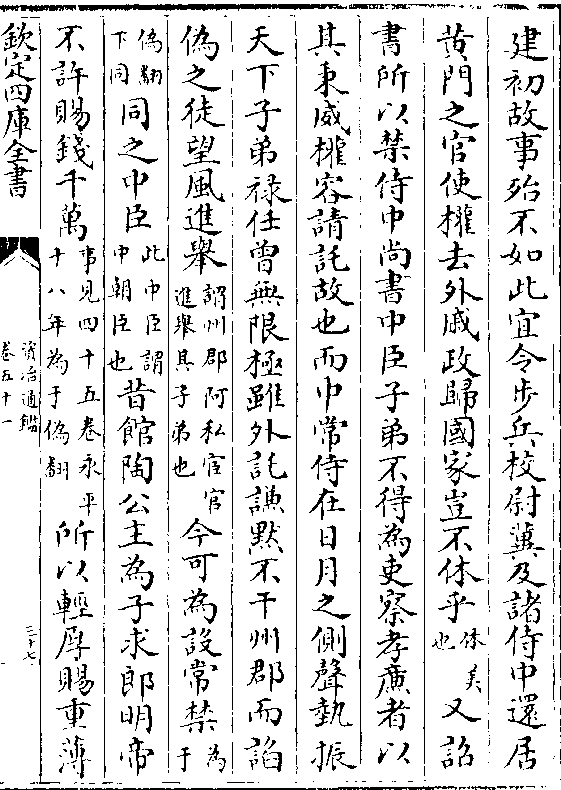 建初故事殆不如此宜令步兵校尉冀及諸侍中還居
黄門之官使權去外戚政歸國家豈不休乎休美也又詔
書所以禁侍中尚書中臣子弟不得為吏察孝廉者以
其秉威權容請託故也而中常侍在日月之側聲埶振
天下子弟禄任曽無限極雖外託謙默不干州郡而諂
偽之徒望風進舉謂州郡阿私宦官進舉其子弟也今可為設常禁為于
偽翻下同同之中臣此中臣謂中朝臣也昔館陶公主為子求郎明帝
不許賜錢千萬事見四十五卷永平十八年為于偽翻所以輕厚賜重薄
欽定四庫全書
資治通鑑
卷五十一
三十七